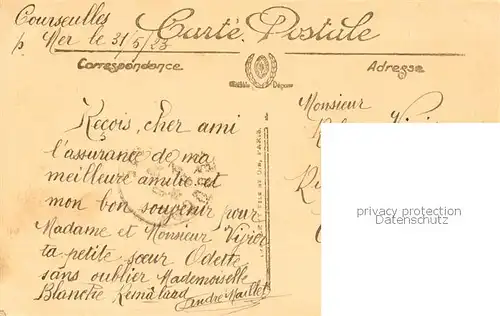 Courseulles
s/ Mer le 31/5/23
Carte Postale
Correspondance
Adresse
Modèle Déposé
Monsieur
Reçois, cher ami
l'assurance de ma
meilleure amitié et
mon bon souvenir pour
Madame et Monsieur
ta petite sœur Odette
sans oublier Mademoiselle
Blanche
André Maillet
privacy protection
Datenschutz